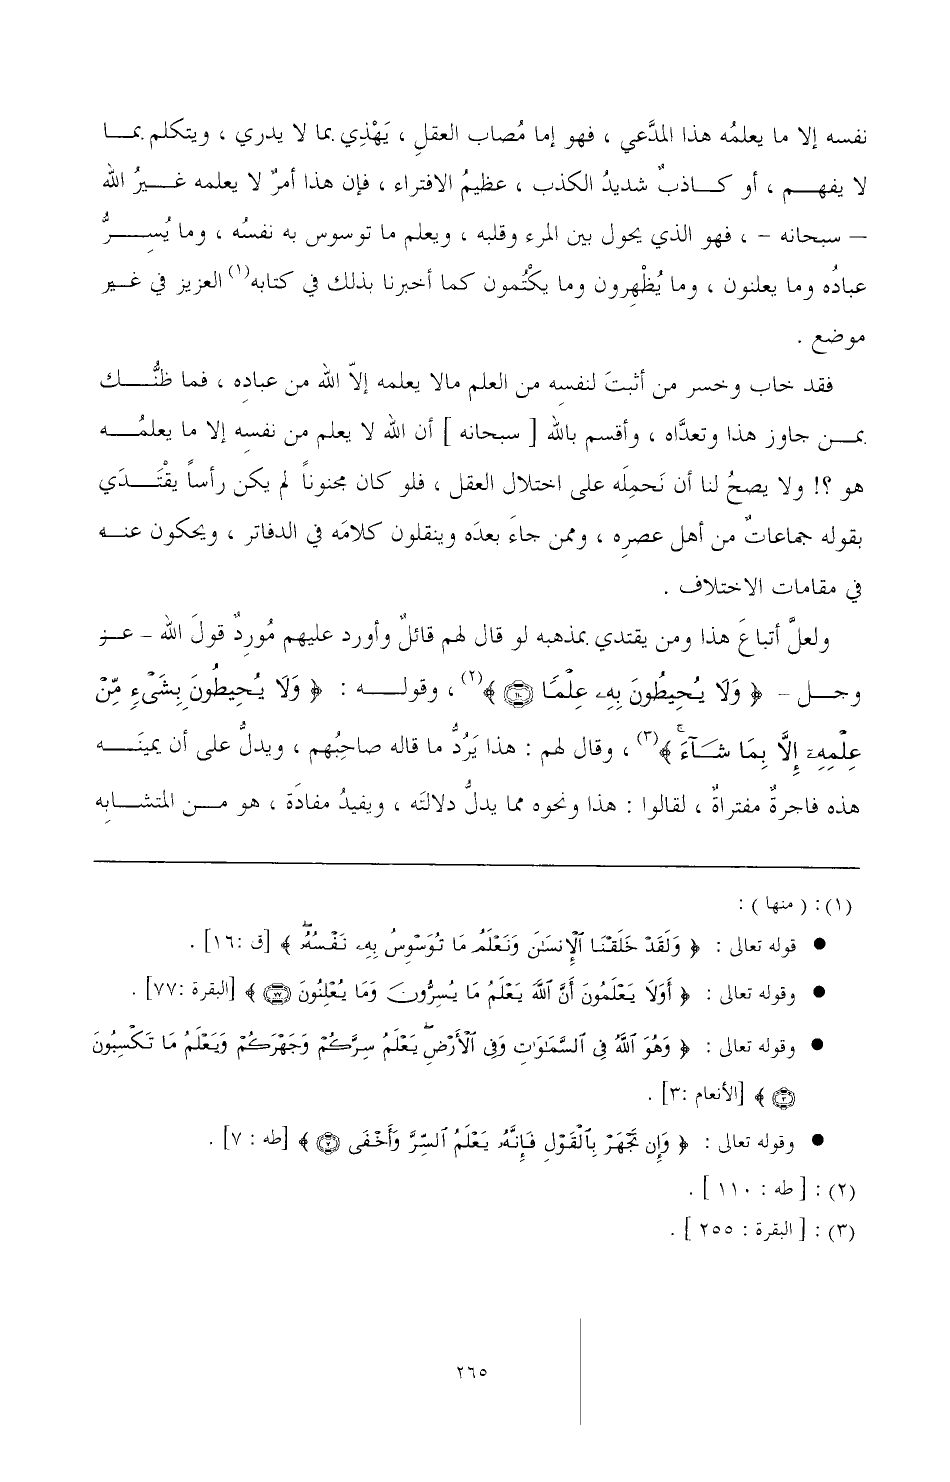 نفسه إلا ما يعلمُه هذا المدَّعي ، فهو إما مُصاب العقلِ ، يَهْذِي بما لا يدري ، ويتكلم بمـــا
لا يفهـــم ، أو كـــاذبٌ شديدُ الكذب ، عظيمُ الافتراء ، فإن هذا أمرٌ لا يعلمه غـــيرُ الله
– سبحانه – ، فهو الذي يحول بين المرء وقلبه ، ويعلم ما توسوس به نفسُه ، وما يُســـرُّ
عبادُه وما يعلنون ، وما يُظْهِرون وما يكتُمون كما أخبرنا بذلك في كتابه(١) العزيز في غـــير
موضع .
فقد خاب وخسر من أثبتَ لنفسهِ من العلم مالا يعلمه إلاّ الله من عبادهِ ، فما ظنُّـــك
بمـــن جاوز هذا وتعدَّاه ، وأقسم بالله [ سبحانه ] أن الله لا يعلم من نفسه إلا ما يعلمُـــه
هو ؟! ولا يصحُ لنا أن نَحمِلَه على اختلال العقل ، فلو كان مجنوناً لم يكن رأساً يقْتَـــدي
بقوله جماعاتٌ من أهل عصرِه ، وممن جاءَ بعدَه وينقلون كلامَه في الدفاتر ، ويحكون عنـــه
في مقامات الاختلاف .
ولعلَّ أتباعَ هذا ومن يقتدي بمذهبه لو قال لهم قائلٌ وأورد عليهم مُوردٌ قولَ الله – عـــز
وجـــل – ﴿ وَلَا يُحِيطُونَ بِهِۦ عِلْمًا ١١٠ ﴾(٢) ، وقولـــه : ﴿ وَلَا يُحِيطُونَ بِشَىْءٍ مِّنْ
عِلْمِهِۦٓ إِلَّا بِمَا شَآءَ ۚ ﴾(٣) ، وقال لهم : هذا يَرُدُّ ما قاله صاحِبُهم ، ويدلُّ على أن يمينَـــه
هذه فاجرةٌ مفتراةٌ ، لقالوا : هذا ونحوه مما يدلُّ دلالتَه ، ويفيدُ مفادَة ، هو مـــن المتشـــابه
(١): ( منها ) :
● قوله تعالى : ﴿ وَلَقَدْ خَلَقْنَا ٱلْإِنسَٰنَ وَنَعْلَمُ مَا تُوَسْوِسُ بِهِۦ نَفْسُهُۥ ۖ ﴾ [ق :١٦] .
● وقوله تعالى : ﴿ أَوَلَا يَعْلَمُونَ أَنَّ ٱللَّهَ يَعْلَمُ مَا يُسِرُّونَ وَمَا يُعْلِنُونَ ٧٧ ﴾ [البقرة :٧٧] .
● وقوله تعالى : ﴿ وَهُوَ ٱللَّهُ فِى ٱلسَّمَٰوَٰتِ وَفِى ٱلْأَرْضِ ۖ يَعْلَمُ سِرَّكُمْ وَجَهْرَكُمْ وَيَعْلَمُ مَا تَكْسِبُونَ
٣ ﴾ [الأنعام :٣] .
● وقوله تعالى : ﴿ وَإِن تَجْهَرْ بِٱلْقَوْلِ فَإِنَّهُۥ يَعْلَمُ ٱلسِّرَّ وَأَخْفَى ٧ ﴾ [طه : ٧] .
(٢) : [ طه : ١١٠ ] .
(٣) : [ البقرة : ٢٥٥ ] .
٢٦٥